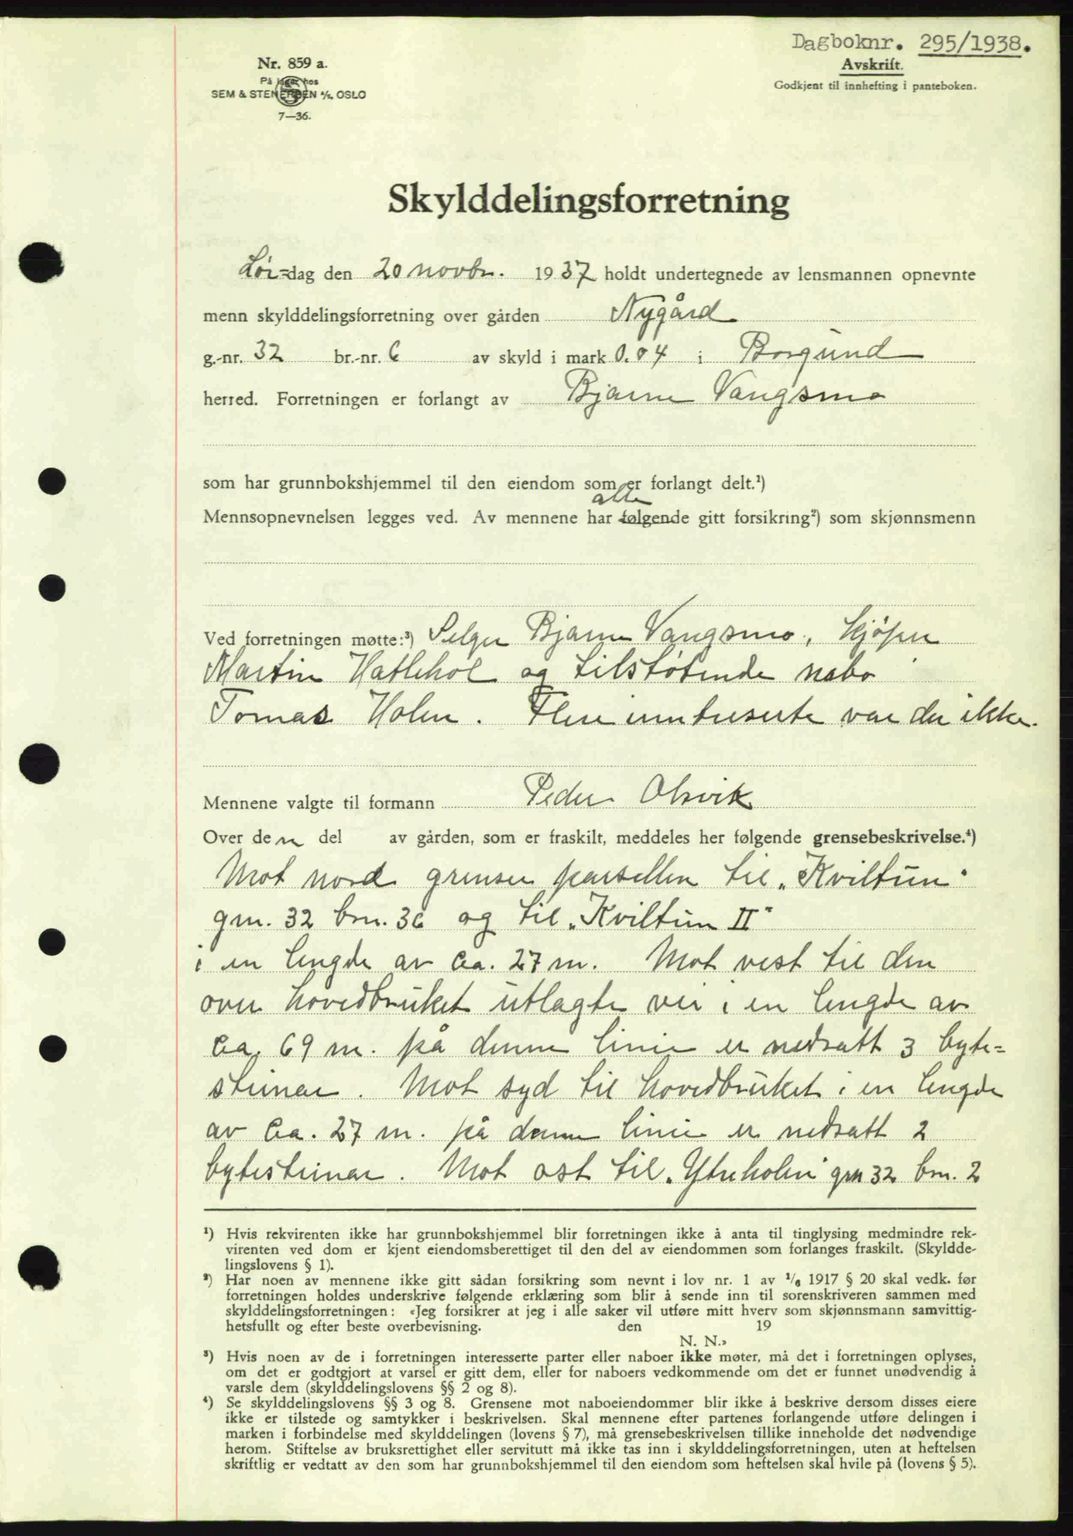 Dagboknr. 295/1938.
Avskrift.
Godkjent til innhefting i panteboken.
Nr. 859 a.
På lager hos
SEM & STENERSEN A/S, OSLO
7—36.
Skylddelingsforretning
Lør=dag den 20 novbr. 1937 holdt undertegnede av lensmannen opnevnte
menn skylddelingsforretning over gården Nygård
g.-nr. 32 br.-nr. 6 av skyld i mark 0.04 i Borgund
herred. Forretningen er forlangt av Bjarne Vangsmo
som har grunnbokshjemmel til den eiendom som er forlangt delt.¹)
alle
Mennsopnevnelsen legges ved. Av mennene har følgende gitt forsikring²) som skjønnsmenn
Ved forretningen møtte:³) Selger Bjarne Vangsmo, kjøper
Martin Hatlehol og tilstøtende nabo
Tomas Holen. Flere inntereserte var der ikke.
Mennene valgte til formann Peder Olsvik
Over den del av gården, som er fraskilt, meddeles her følgende grensebeskrivelse.⁴)
Mot nord grenser parsellen til „Kviltun"
gnr. 32 bnr. 36 og til „Kviltun II"
i en lengde av ca. 27 m. Mot vest til den
over hovedbruket utlagte vei i en lengde av
ca. 69 m. på denne linie er nedsatt 3 byte=
steinar. Mot syd til hovedbruket i en lengde
av ca. 27 m. på denne linie er nedsatt 2
bytesteinar. Mot ost til „Ytreholen" gnr 32 bnr. 2
¹) Hvis rekvirenten ikke har grunnbokshjemmel blir forretningen ikke å anta til tinglysing medmindre rek-
virenten ved dom er kjent eiendomsberettiget til den del av eiendommen som forlanges fraskilt. (Skyldde-
lingslovens § 1).
²) Har noen av mennene ikke gitt sådan forsikring som nevnt i lov nr. 1 av 1/6 1917 § 20 skal vedk. før
forretningen holdes underskrive følgende erklæring som blir å sende inn til sorenskriveren sammen med
skylddelingsforretningen: «Jeg forsikrer at jeg i alle saker vil utføre mitt hverv som skjønnsmann samvittig-
hetsfullt og efter beste overbevisning. den 19
N. N.»
³) Hvis noen av de i forretningen interesserte parter eller naboer ikke møter, må det i forretningen oplyses,
om det er godtgjort at varsel er gitt dem, eller for naboers vedkommende om det er funnet unødvendig å
varsle dem (skylddelingslovens §§ 2 og 8).
⁴) Se skylddelingslovens §§ 3 og 8. Grensene mot naboeiendommer blir ikke å beskrive dersom disses eiere
ikke er tilstede og samtykker i beskrivelsen. Skal mennene efter partenes forlangende utføre delingen i
marken i forbindelse med skylddelingen (lovens § 7), må grensebeskrivelsen tillike inneholde det nødvendige
herom. Stiftelse av bruksrettighet eller servitutt må ikke tas inn i skylddelingsforretningen, uten at heftelsen
skriftlig er vedtatt av den som har grunnbokshjemmel til den eiendom som heftelsen skal hvile på (lovens § 5).